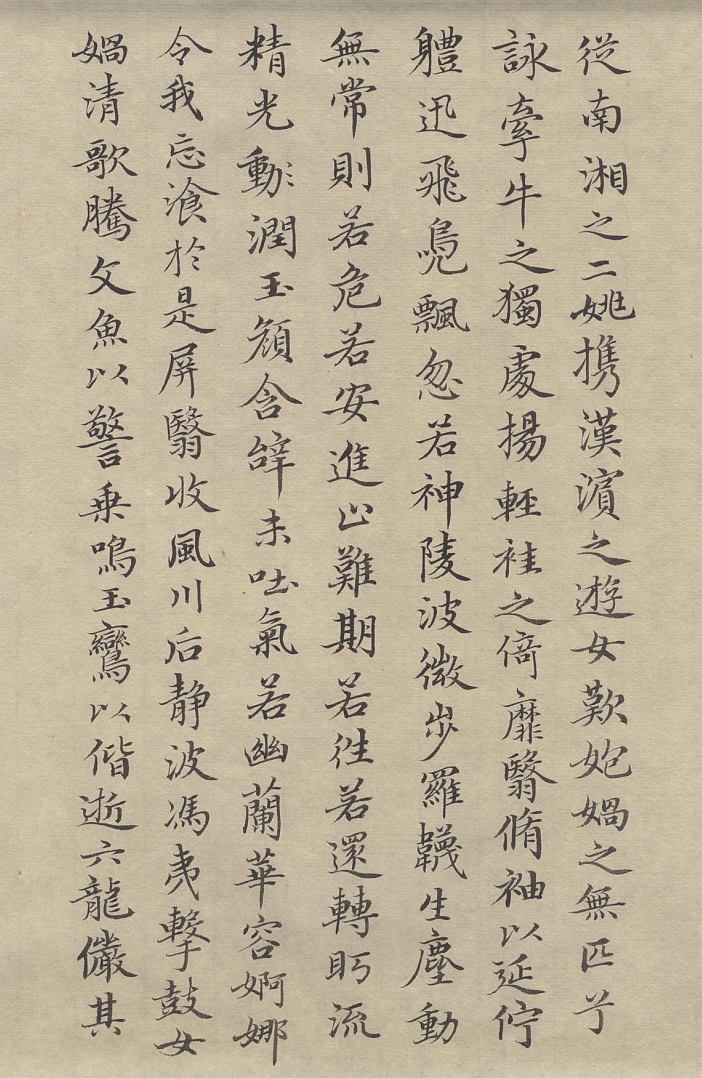 從南湘之二姚携漢濱之遊女歎匏媧之無匹兮
詠牽牛之獨處揚輕袿之倚靡翳脩袖以延佇
軆迅飛鳧飄忽若神陵波微步羅韈生塵動
無常則若危若安進止難期若往若還轉眄流
精光動彡潤玉顏含辭未吐氣若幽蘭華容婀娜
令我忘湌於是屏翳收風川后靜波馮夷擊鼓女
媧清歌騰文魚以警乗鳴玉鸞以偕逝六龍儼其